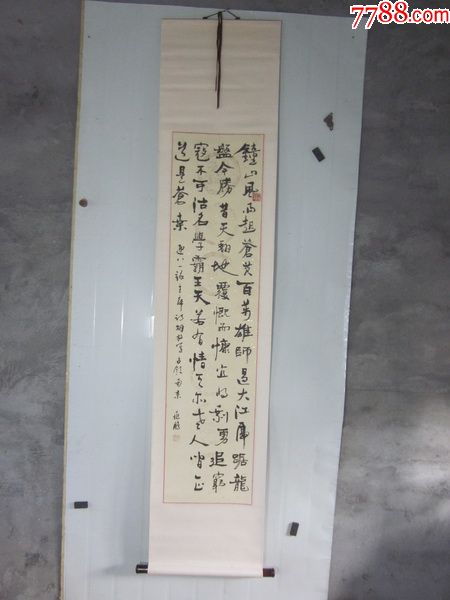 7788.com
鐘山風雨起蒼黃百萬雄師過大江虎踞龍
盤今勝昔天翻地覆慨而慷宜將剩勇追窮
寇不可沽名學霸王天若有情天亦老人間正
道是蒼桑